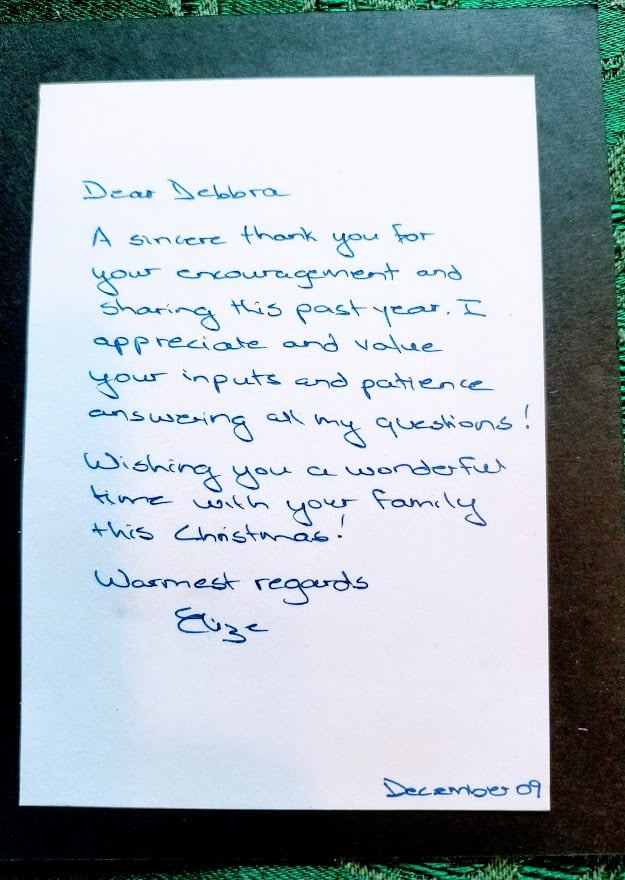 Dear Debbra
A sincere thank you for
your encouragement and
sharing this past year. I
appreciate and value
your inputs and patience
answering all my questions!
Wishing you a wonderful
time with your family
this Christmas!
Warmest regards
Elize
December 09